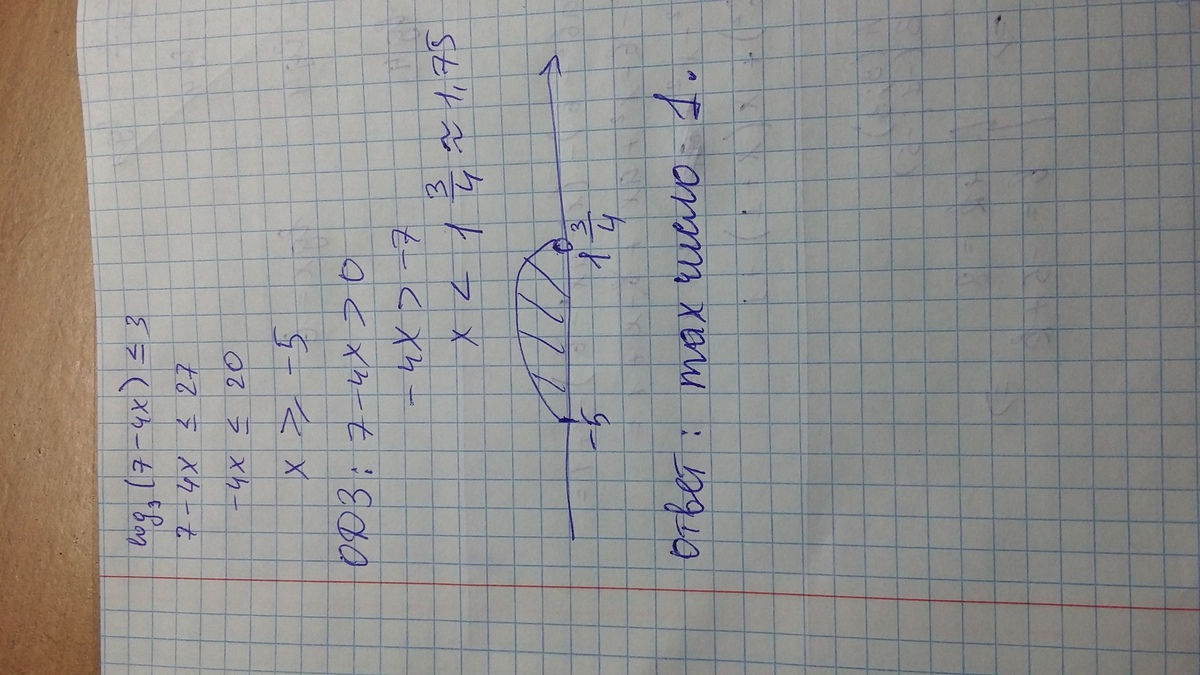 log₃(7-4x) ≤ 3
7-4x ≤ 27
-4x ≤ 20
x ≥ -5
ОДЗ: 7-4x > 0
-4x > -7
x < 1 3/4 ≈ 1,75
-5 1 3/4
Ответ: max число 1.